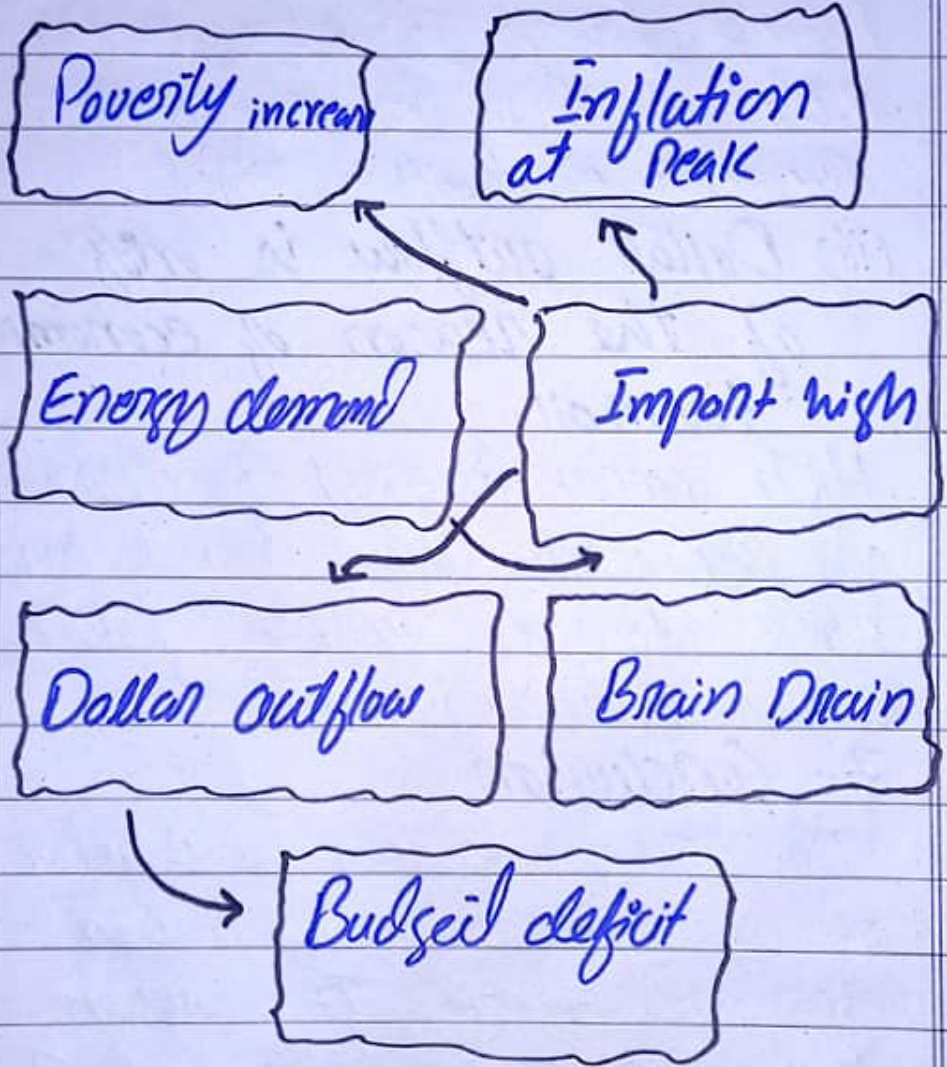 Poverity increase
Inflation
at Peak
Energy demand
Import high
Dollar outflow
Brain Drain
Budged deficit